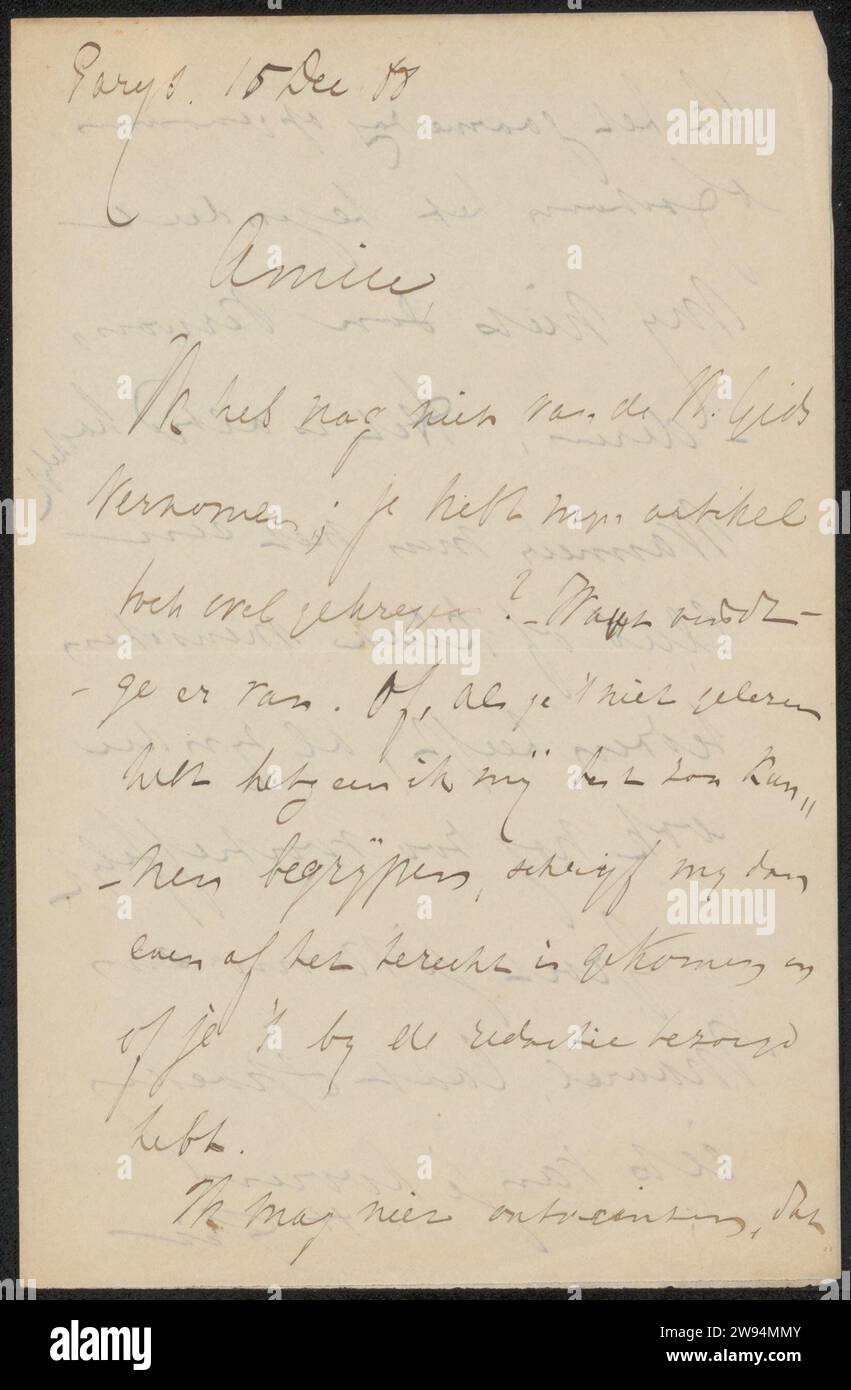 Parys. 15 Dec 88
Amice,
Ik heb nog niet van de N. Gids
vernomen; je hebt myn artikel
toch wel gekregen? – Wat vindt –
– ge er van. Of, als je 't niet gelezen
hebt hetgeen ik mij best zou kun„
– nen begrijpen, schrijf my dan
even of het terecht is gekomen en
of je 't by de redactie bezorgd
hebt.
Ik mag niet ontveinzen, dat
alamy
Image ID: 2W94MMY
www.alamy.com